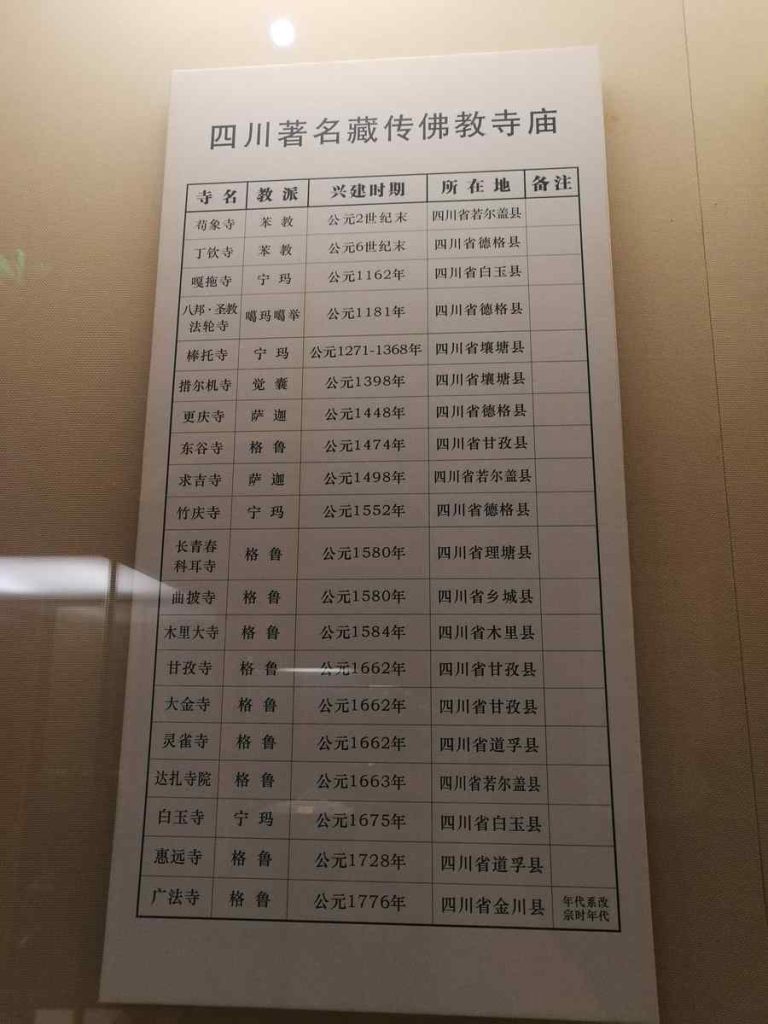 四川著名藏传佛教寺庙
寺名 教派 兴建时期 所在地 备注
苟象寺 苯教 公元2世纪末 四川省若尔盖县
丁钦寺 苯教 公元6世纪末 四川省德格县
嘎拖寺 宁玛 公元1162年 四川省白玉县
八邦·圣教
法轮寺 噶玛噶举 公元1181年 四川省德格县
棒托寺 宁玛 公元1271-1368年 四川省壤塘县
措尔机寺 觉囊 公元1398年 四川省壤塘县
更庆寺 萨迦 公元1448年 四川省德格县
东谷寺 格鲁 公元1474年 四川省甘孜县
求吉寺 萨迦 公元1498年 四川省若尔盖县
竹庆寺 宁玛 公元1552年 四川省德格县
长青春
科耳寺 格鲁 公元1580年 四川省理塘县
曲披寺 格鲁 公元1580年 四川省乡城县
木里大寺 格鲁 公元1584年 四川省木里县
甘孜寺 格鲁 公元1662年 四川省甘孜县
大金寺 格鲁 公元1662年 四川省甘孜县
灵雀寺 格鲁 公元1662年 四川省道孚县
达扎寺院 格鲁 公元1663年 四川省若尔盖县
白玉寺 宁玛 公元1675年 四川省白玉县
惠远寺 格鲁 公元1728年 四川省道孚县
广法寺 格鲁 公元1776年 四川省金川县 年代系改
宗时年代